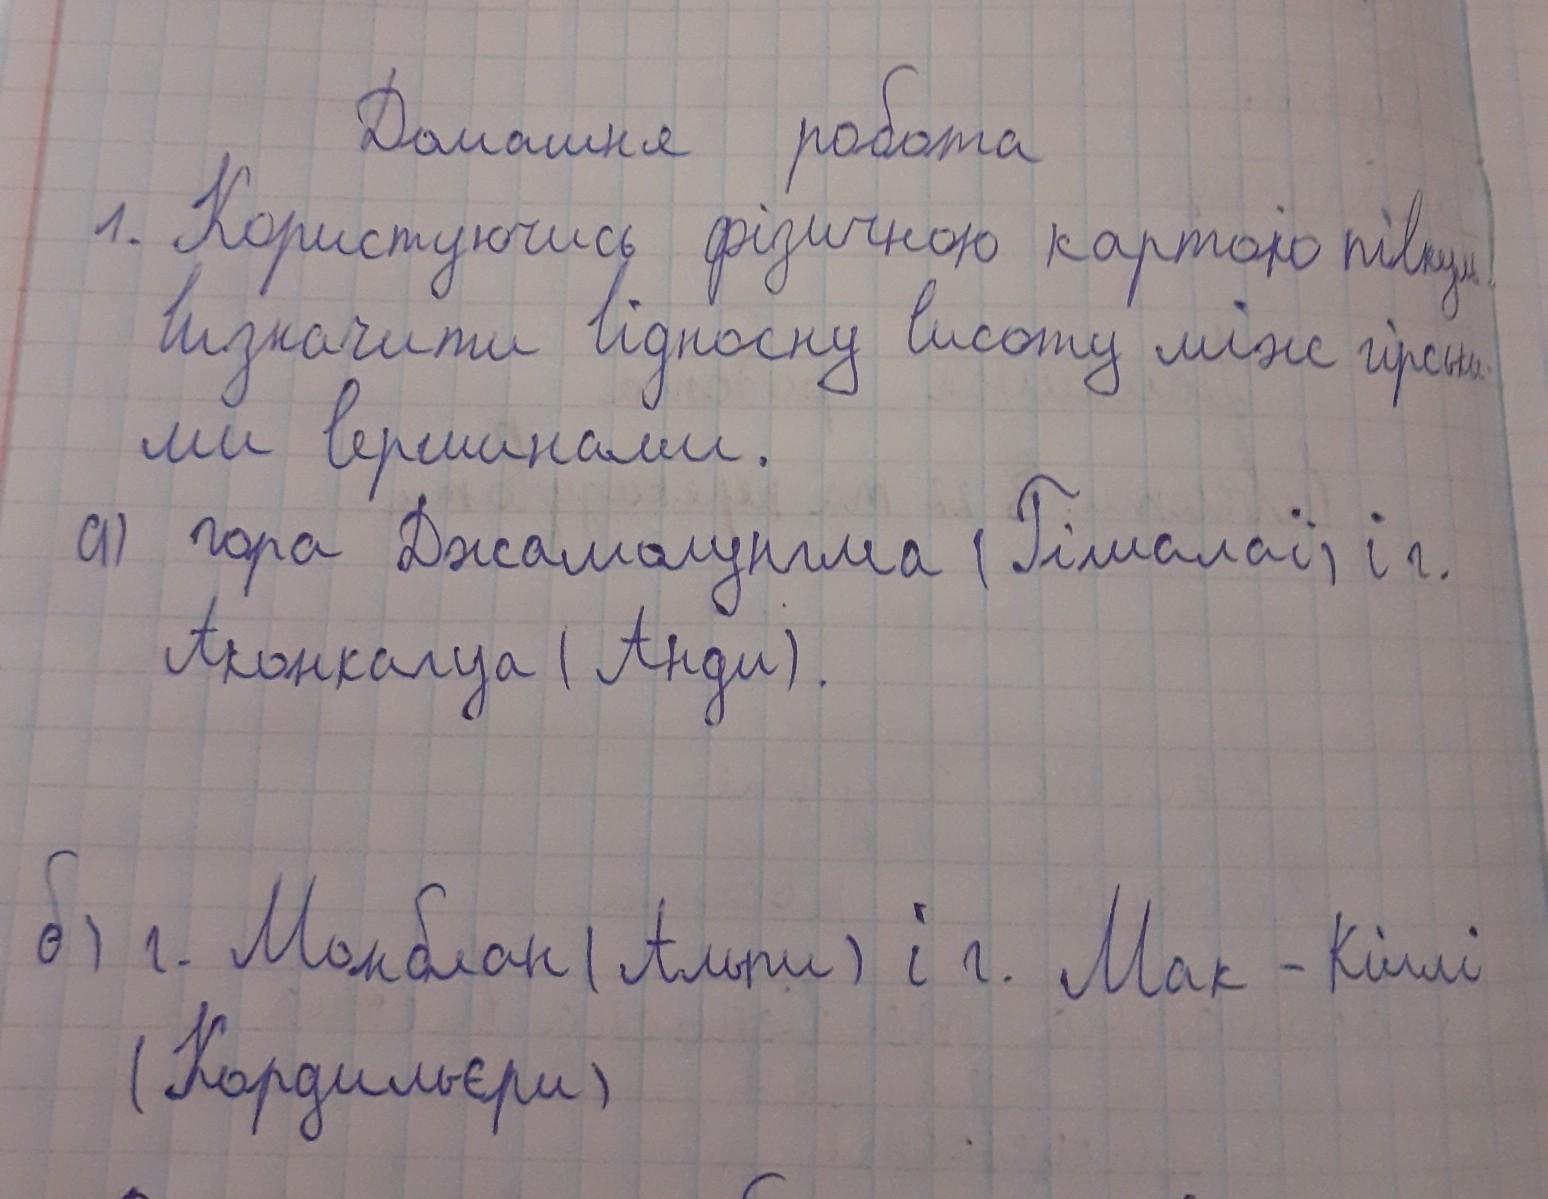 Домашня робота
1. Користуючись фізичною картою півкул.
визначити відносну висоту між гірськи-
ми вершинами.
а) гора Джамолунгма (Гімалаї) і г.
Аконкагуа (Анди).
б) г. Монблан (Альпи) і г. Мак - Кінлі
(Кордильєри)